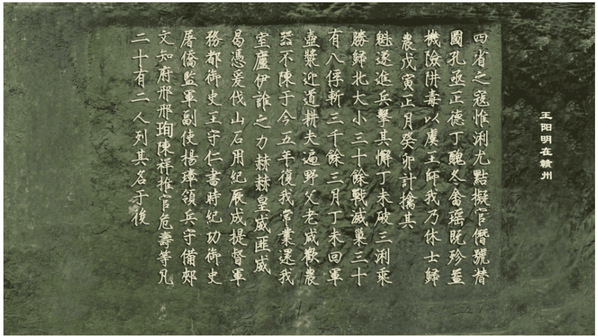 王阳明在赣州
四省之寇惟浰尤黠擬官僭號替
圖孔亟正德丁醜冬畬瑶既殄益
機險阱毒以虞王師我乃休士歸
農戊寅正月癸卯計擒其
魁遂進兵擊其懈丁未破三浰乘
勝歸北大小三十餘戰滅巢三十
有八俘斬三千餘三月丁未回軍
壺漿迎道耕夫遍野父老咸歡農
器不陳于今五年復我常業還我
室廬伊誰之力赫赫皇威匪威
曷憑爰伐山石用紀厥成提督軍
務都御史王守仁書時紀功御史
屠僑監軍副使楊璋領兵守備郟
文知府邢珣陳祥推官危壽等凡
二十有二人列其名于後